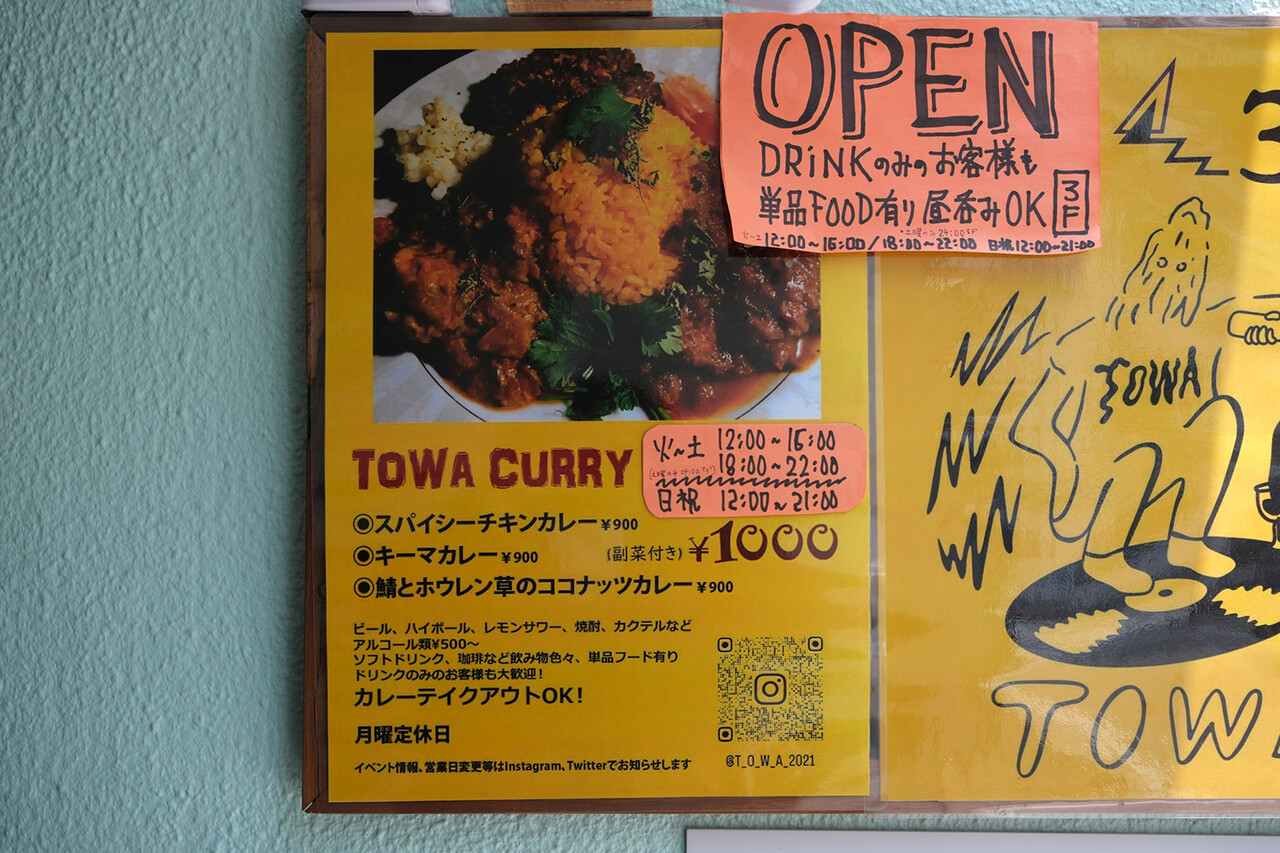 OPEN
DRiNKのみのお客様も
単品FOOD有り昼呑みOK 3F
火〜土 12:00〜15:00/18:00〜22:00 日祝12:00〜21:00
*土曜のみ24:00まで
TOWA CURRY
火〜土 12:00〜15:00
18:00〜22:00
日祝 12:00〜21:00
◉スパイシーチキンカレー ¥900
◉キーマカレー ¥900 (副菜付き) ¥1000
◉鯖とホウレン草のココナッツカレー ¥900
ビール、ハイボール、レモンサワー、焼酎、カクテルなど
アルコール類¥500〜
ソフトドリンク、珈琲など飲み物色々、単品フード有り
ドリンクのみのお客様も大歓迎!
カレーテイクアウトOK!
月曜定休日
イベント情報、営業日変更等はInstagram、Twitterでお知らせします
@T_O_W_A_2021
3
TOWA
TOW